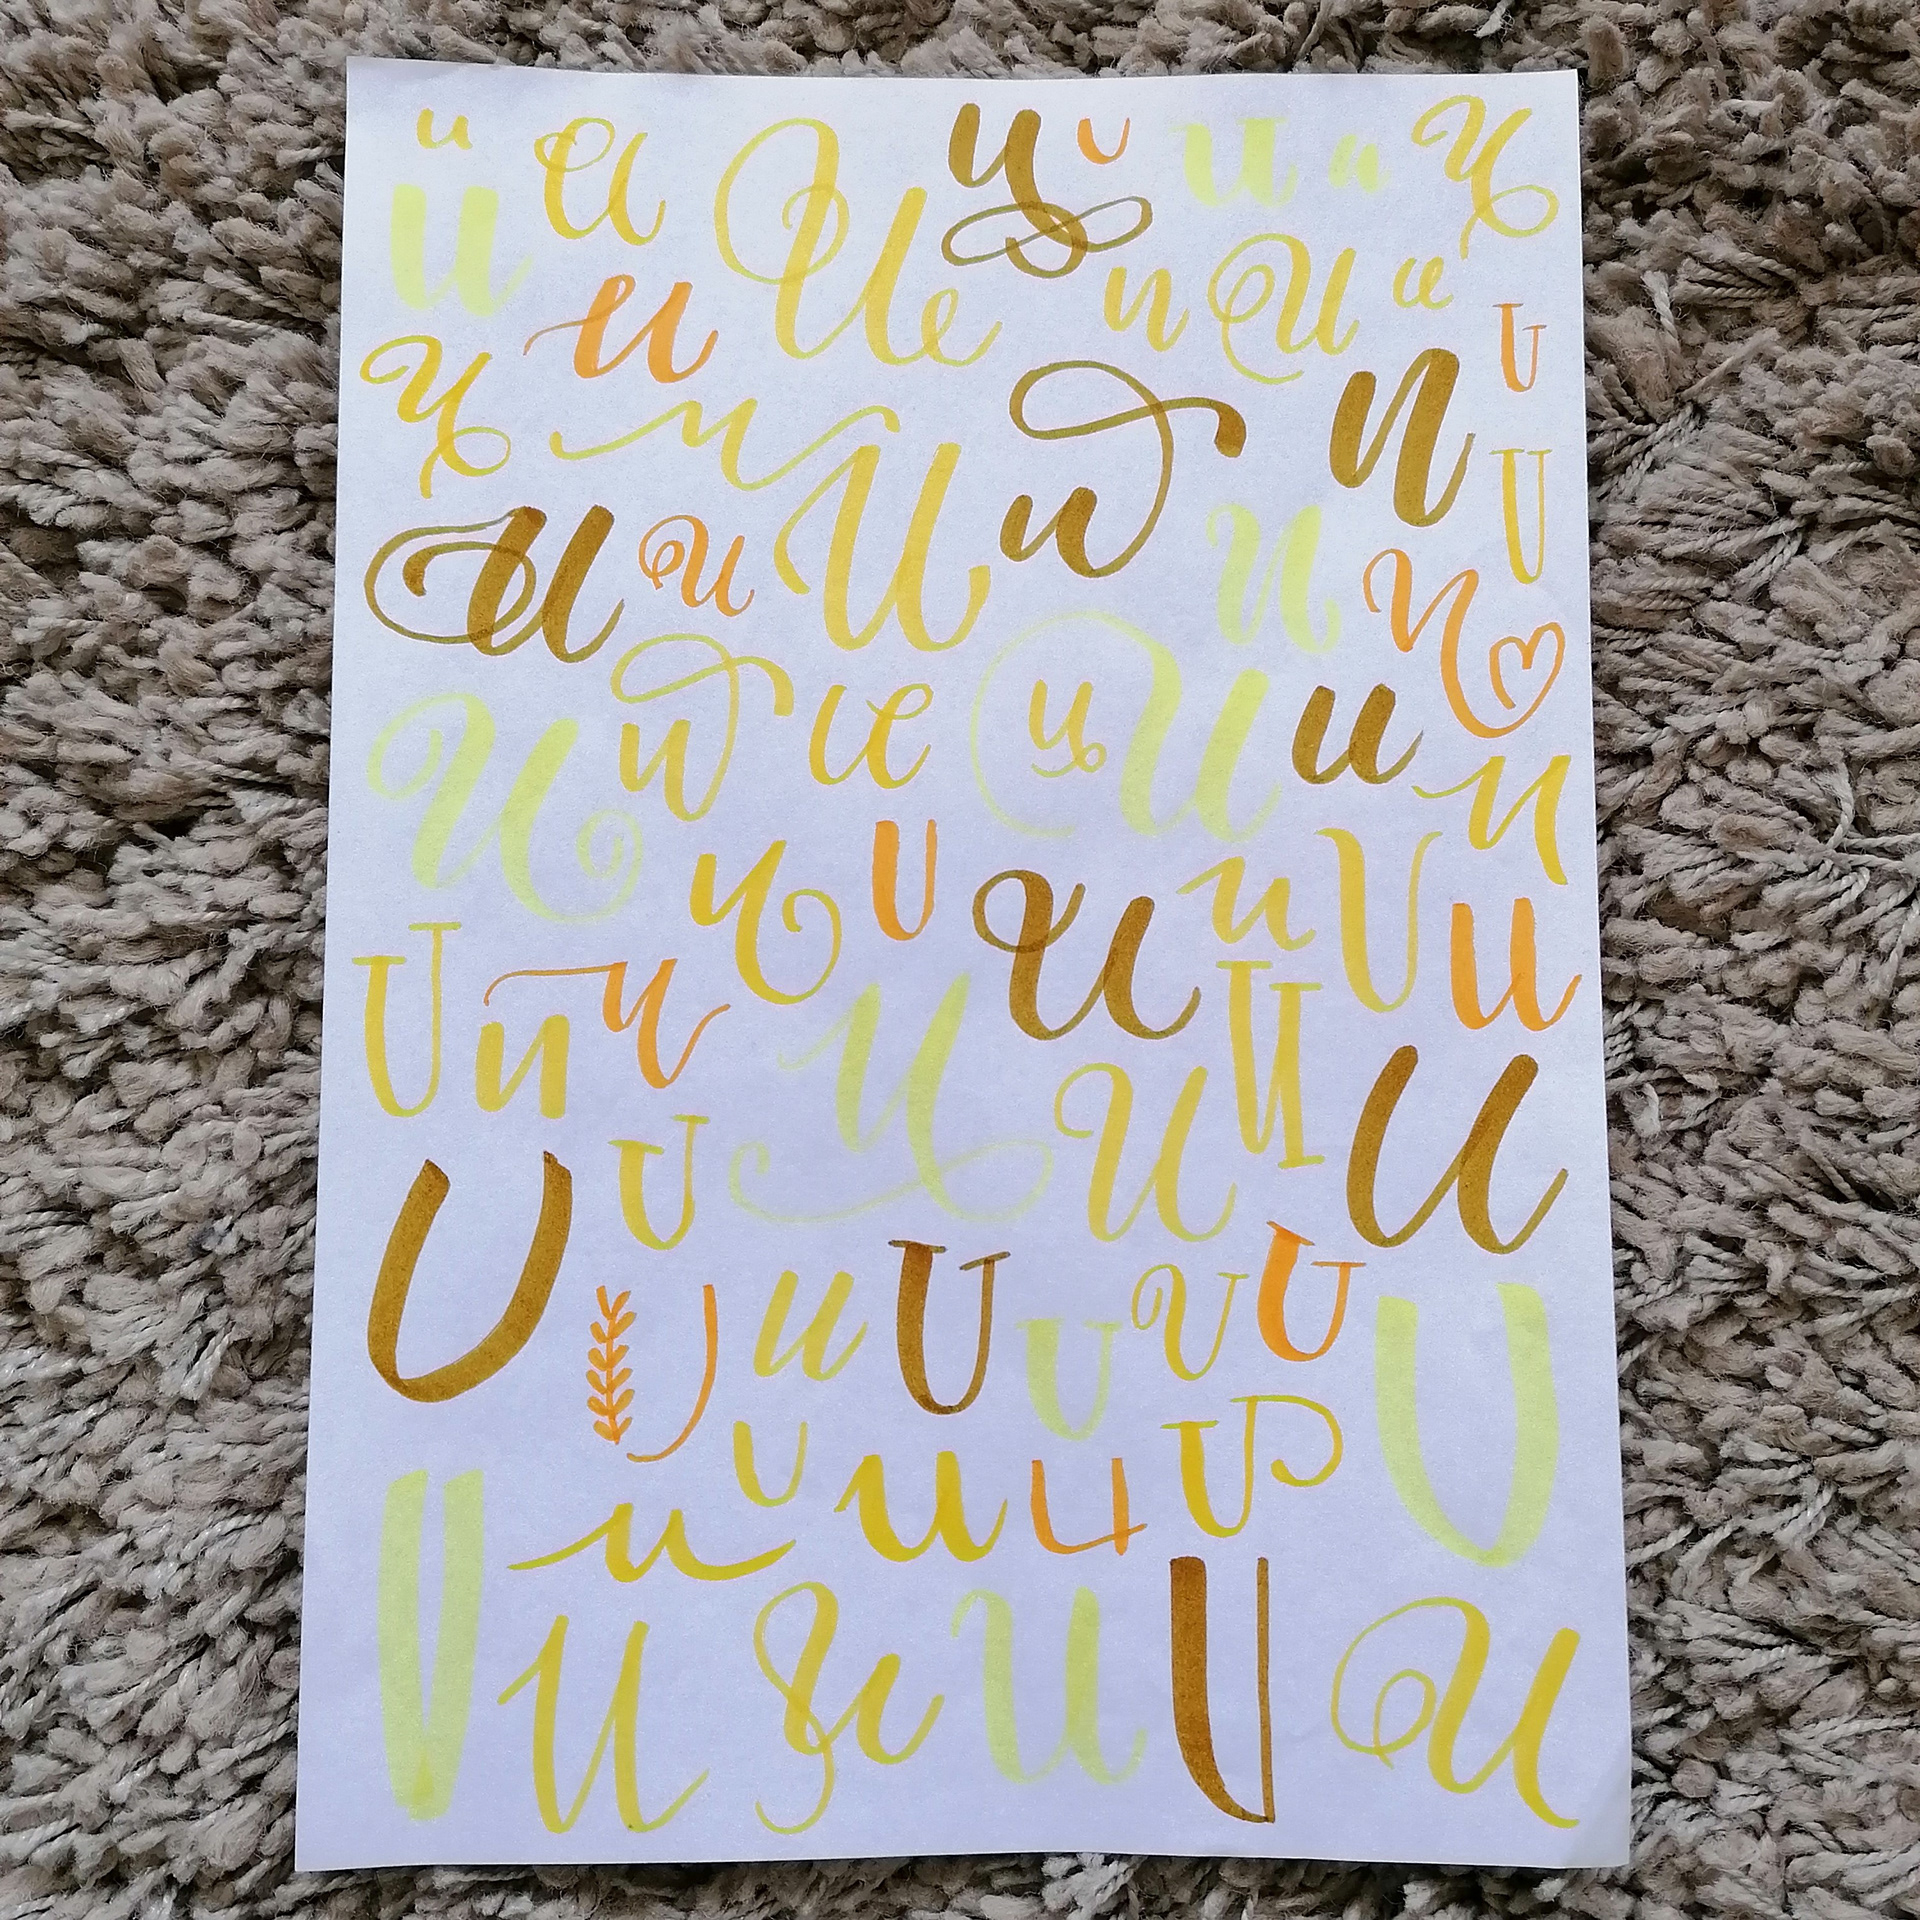 u U U u u u u U
u u u U u U
U u U u U U
U u U U
U u u u U u u
u U U u U u
U u u U U U U
U U
U u U U U U U
U U u u U U
U U U U U